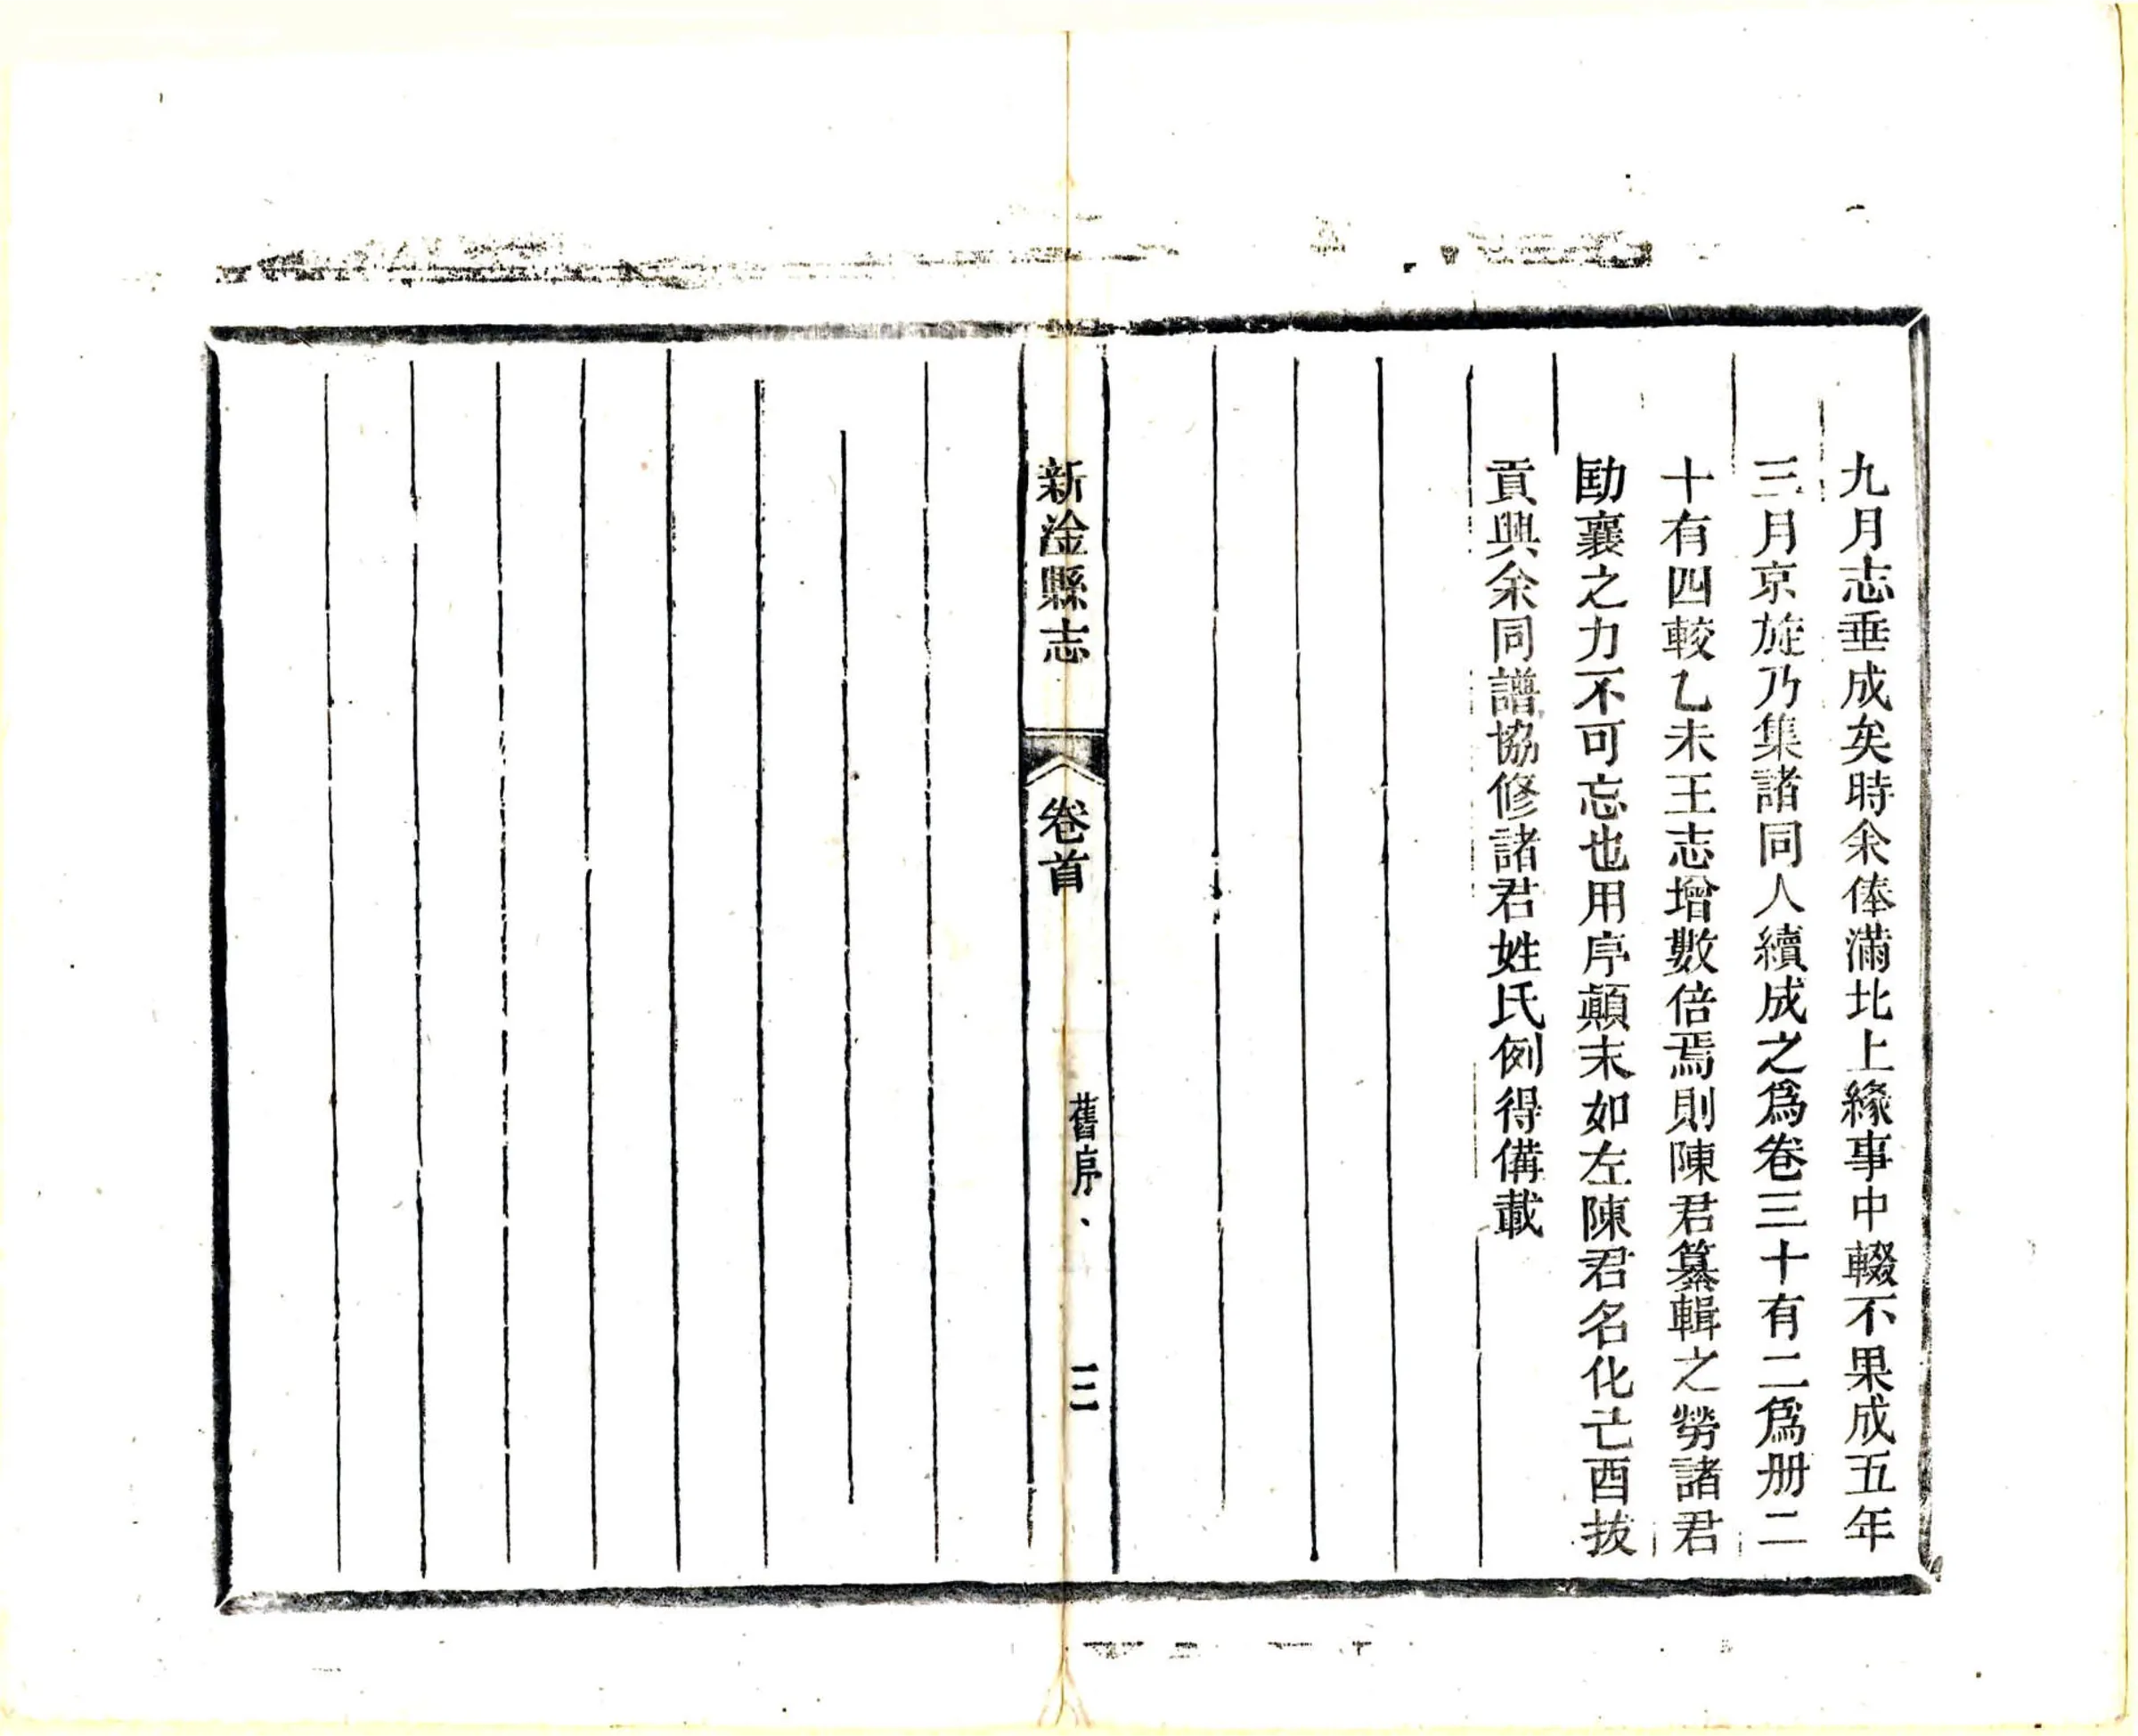 九月志垂成矣時余俸滿北上緣事中輟不果成五年
三月京旋乃集諸同人續成之爲卷三十有二爲册二
十有四較乙未王志增數倍焉則陳君纂輯之勞諸君
劻襄之力不可忘也用序顛末如左陳君名化己酉拔
貢與余同譜協修諸君姓氏例得備載
新淦縣志
卷首
舊序
三